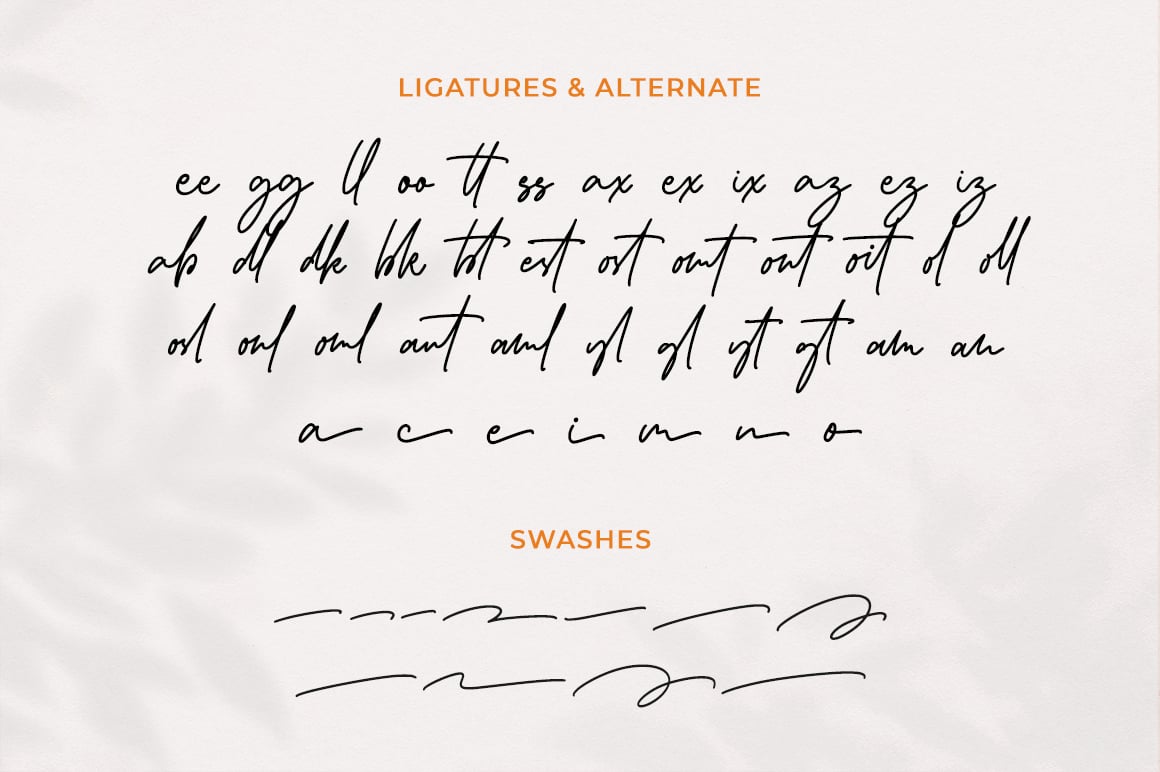 LIGATURES & ALTERNATE
ee gg ll oo tt ss ax ex ix az ez iz
ab dl dk bk bt est ost omt ont oit ol oll
osl onl oml ant aml yl gl yt gt am an
a c e i m n o
SWASHES